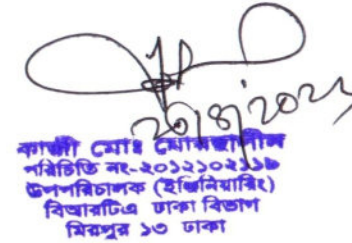 ২০/৪/২০২২
কাজী মোঃ মোরছালীন
পরিচিতি নং-২০১২১০২১১৮
উপপরিচালক (ইঞ্জিনিয়ারিং)
বিআরটিএ ঢাকা বিভাগ
মিরপুর ১৩ ঢাকা